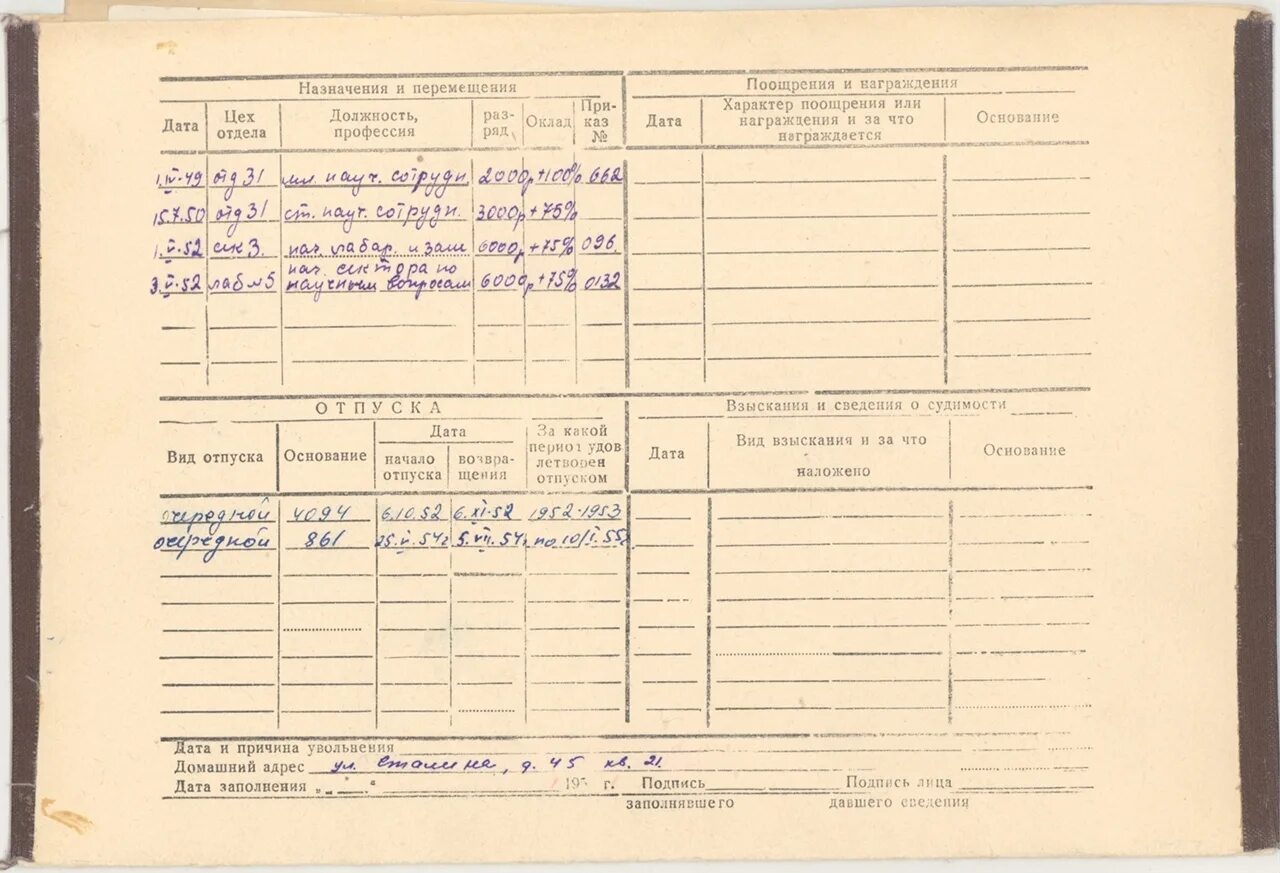 Назначения и перемещения
Поощрения и награждения
Дата
Цех отдела
Должность, профессия
раз-ряд
Оклад
При-каз №
Дата
Характер поощрения или награждения и за что награждается
Основание
1.IV-49 отд 31 мл. науч. сотрудн. 2000р +100% 662
15.7.50 отд 31 ст. науч. сотрудн. 3000р +75%
1.V-52 сек 3. нач. лабар. и зам 6000р +75% 096
нач. сектора по
3.V-52 лаб №5 научным вопросам 6000р +75% 0132
ОТПУСКА
Взыскания и сведения о судимости
Вид отпуска
Основание
Дата
начало отпуска
возвра-щения
За какой период удов летворен отпуском
Дата
Вид взыскания и за что наложено
Основание
очередной 4094 6.10.52 6.XI-52 1952-1953
очередной 861 25.V.54г 5.VII.54г по 10/I.55г
Дата и причина увольнения
Домашний адрес ул. Сталина, д. 45 кв. 21.
Дата заполнения „ “ 195 г. Подпись Подпись лица
заполнявшего давшего сведения